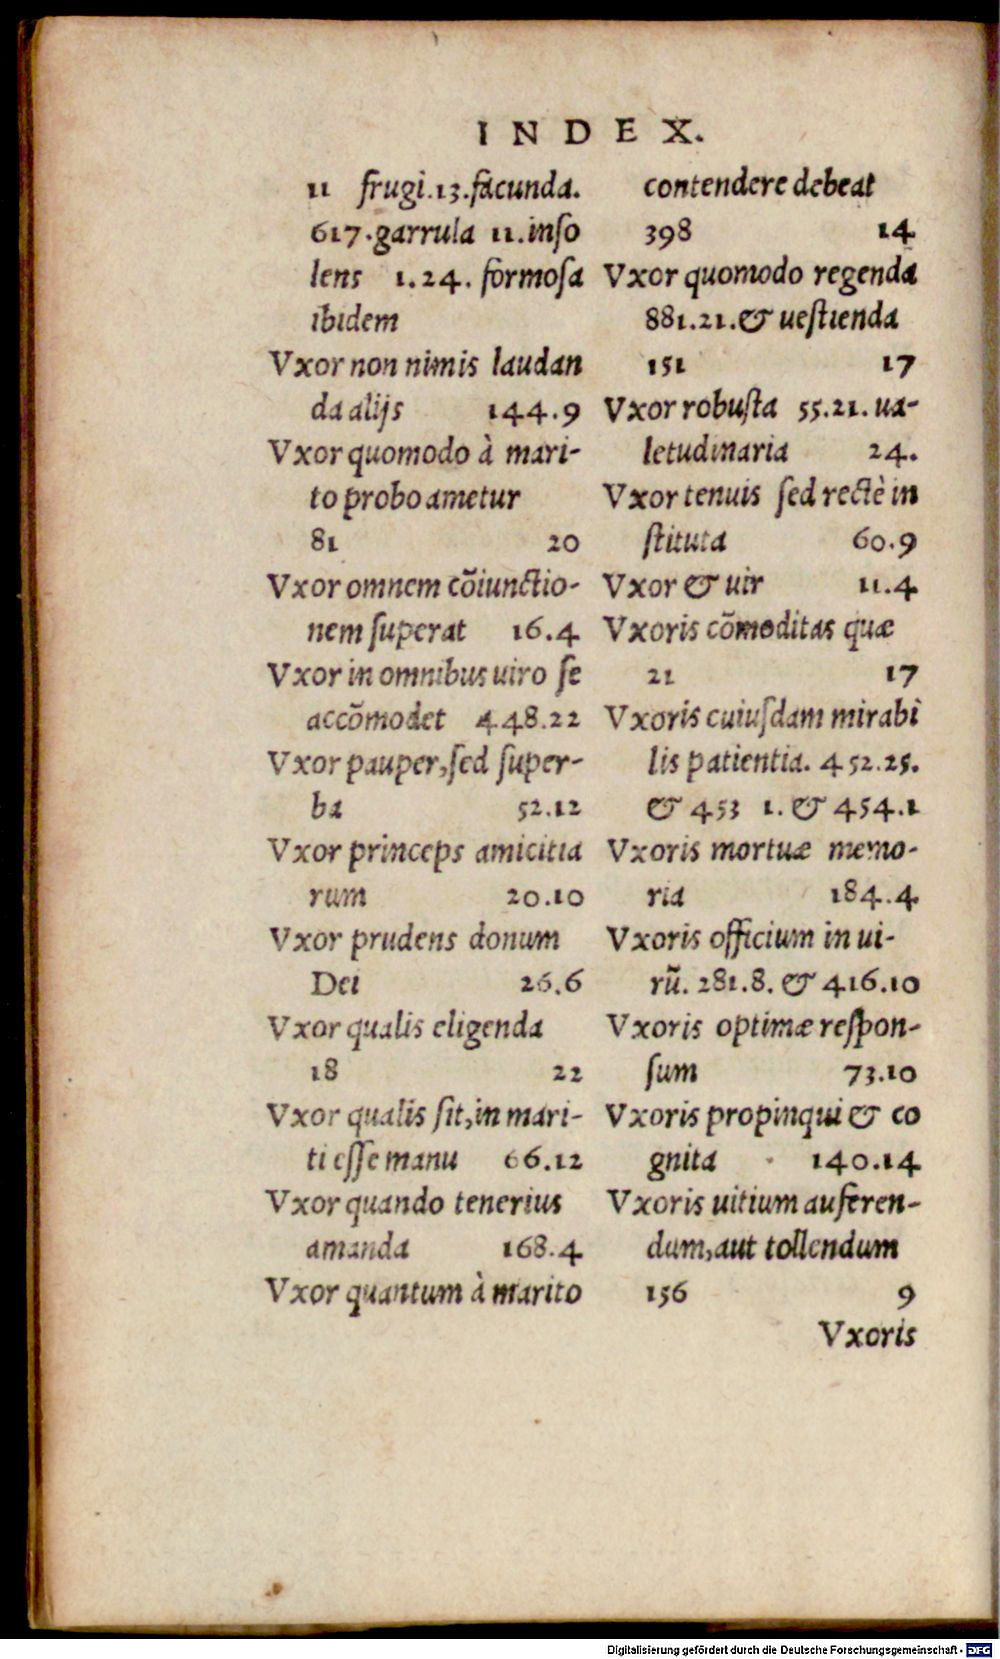 INDEX.
11 frugi.13.facunda.
617.garrula 11.inſo
lens 1.24. formoſa
ibidem
Vxor non nimis laudan
da alijs 144.9
Vxor quomodo à mari-
to probo ametur
81 20
Vxor omnem cõiunctio-
nem ſuperat 16.4
Vxor in omnibus uiro ſe
accõmodet 448.22
Vxor pauper,ſed ſuper-
ba 52.12
Vxor princeps amicitia
rum 20.10
Vxor prudens donum
Dei 26.6
Vxor qualis eligenda
18 22
Vxor qualis ſit,in mari-
ti eſſe manu 66.12
Vxor quando tenerius
amanda 168.4
Vxor quantum à marito
contendere debeat
398 14
Vxor quomodo regenda
881.21.& ueſtienda
151 17
Vxor robuſta 55.21. ua-
letudinaria 24.
Vxor tenuis ſed rectè in
ſtituta 60.9
Vxor & uir 11.4
Vxoris cõmoditas quæ
21 17
Vxoris cuiuſdam mirabi
lis patientia. 452.25.
& 453 1. & 454.1
Vxoris mortuæ memo-
ria 184.4
Vxoris officium in ui-
rũ. 281.8. & 416.10
Vxoris optimæ reſpon-
ſum 73.10
Vxoris propinqui & co
gnita 140.14
Vxoris uitium auferen-
dum,aut tollendum
156 9
Vxoris
Digitalisierung gefördert durch die Deutsche Forschungsgemeinschaft - DFG